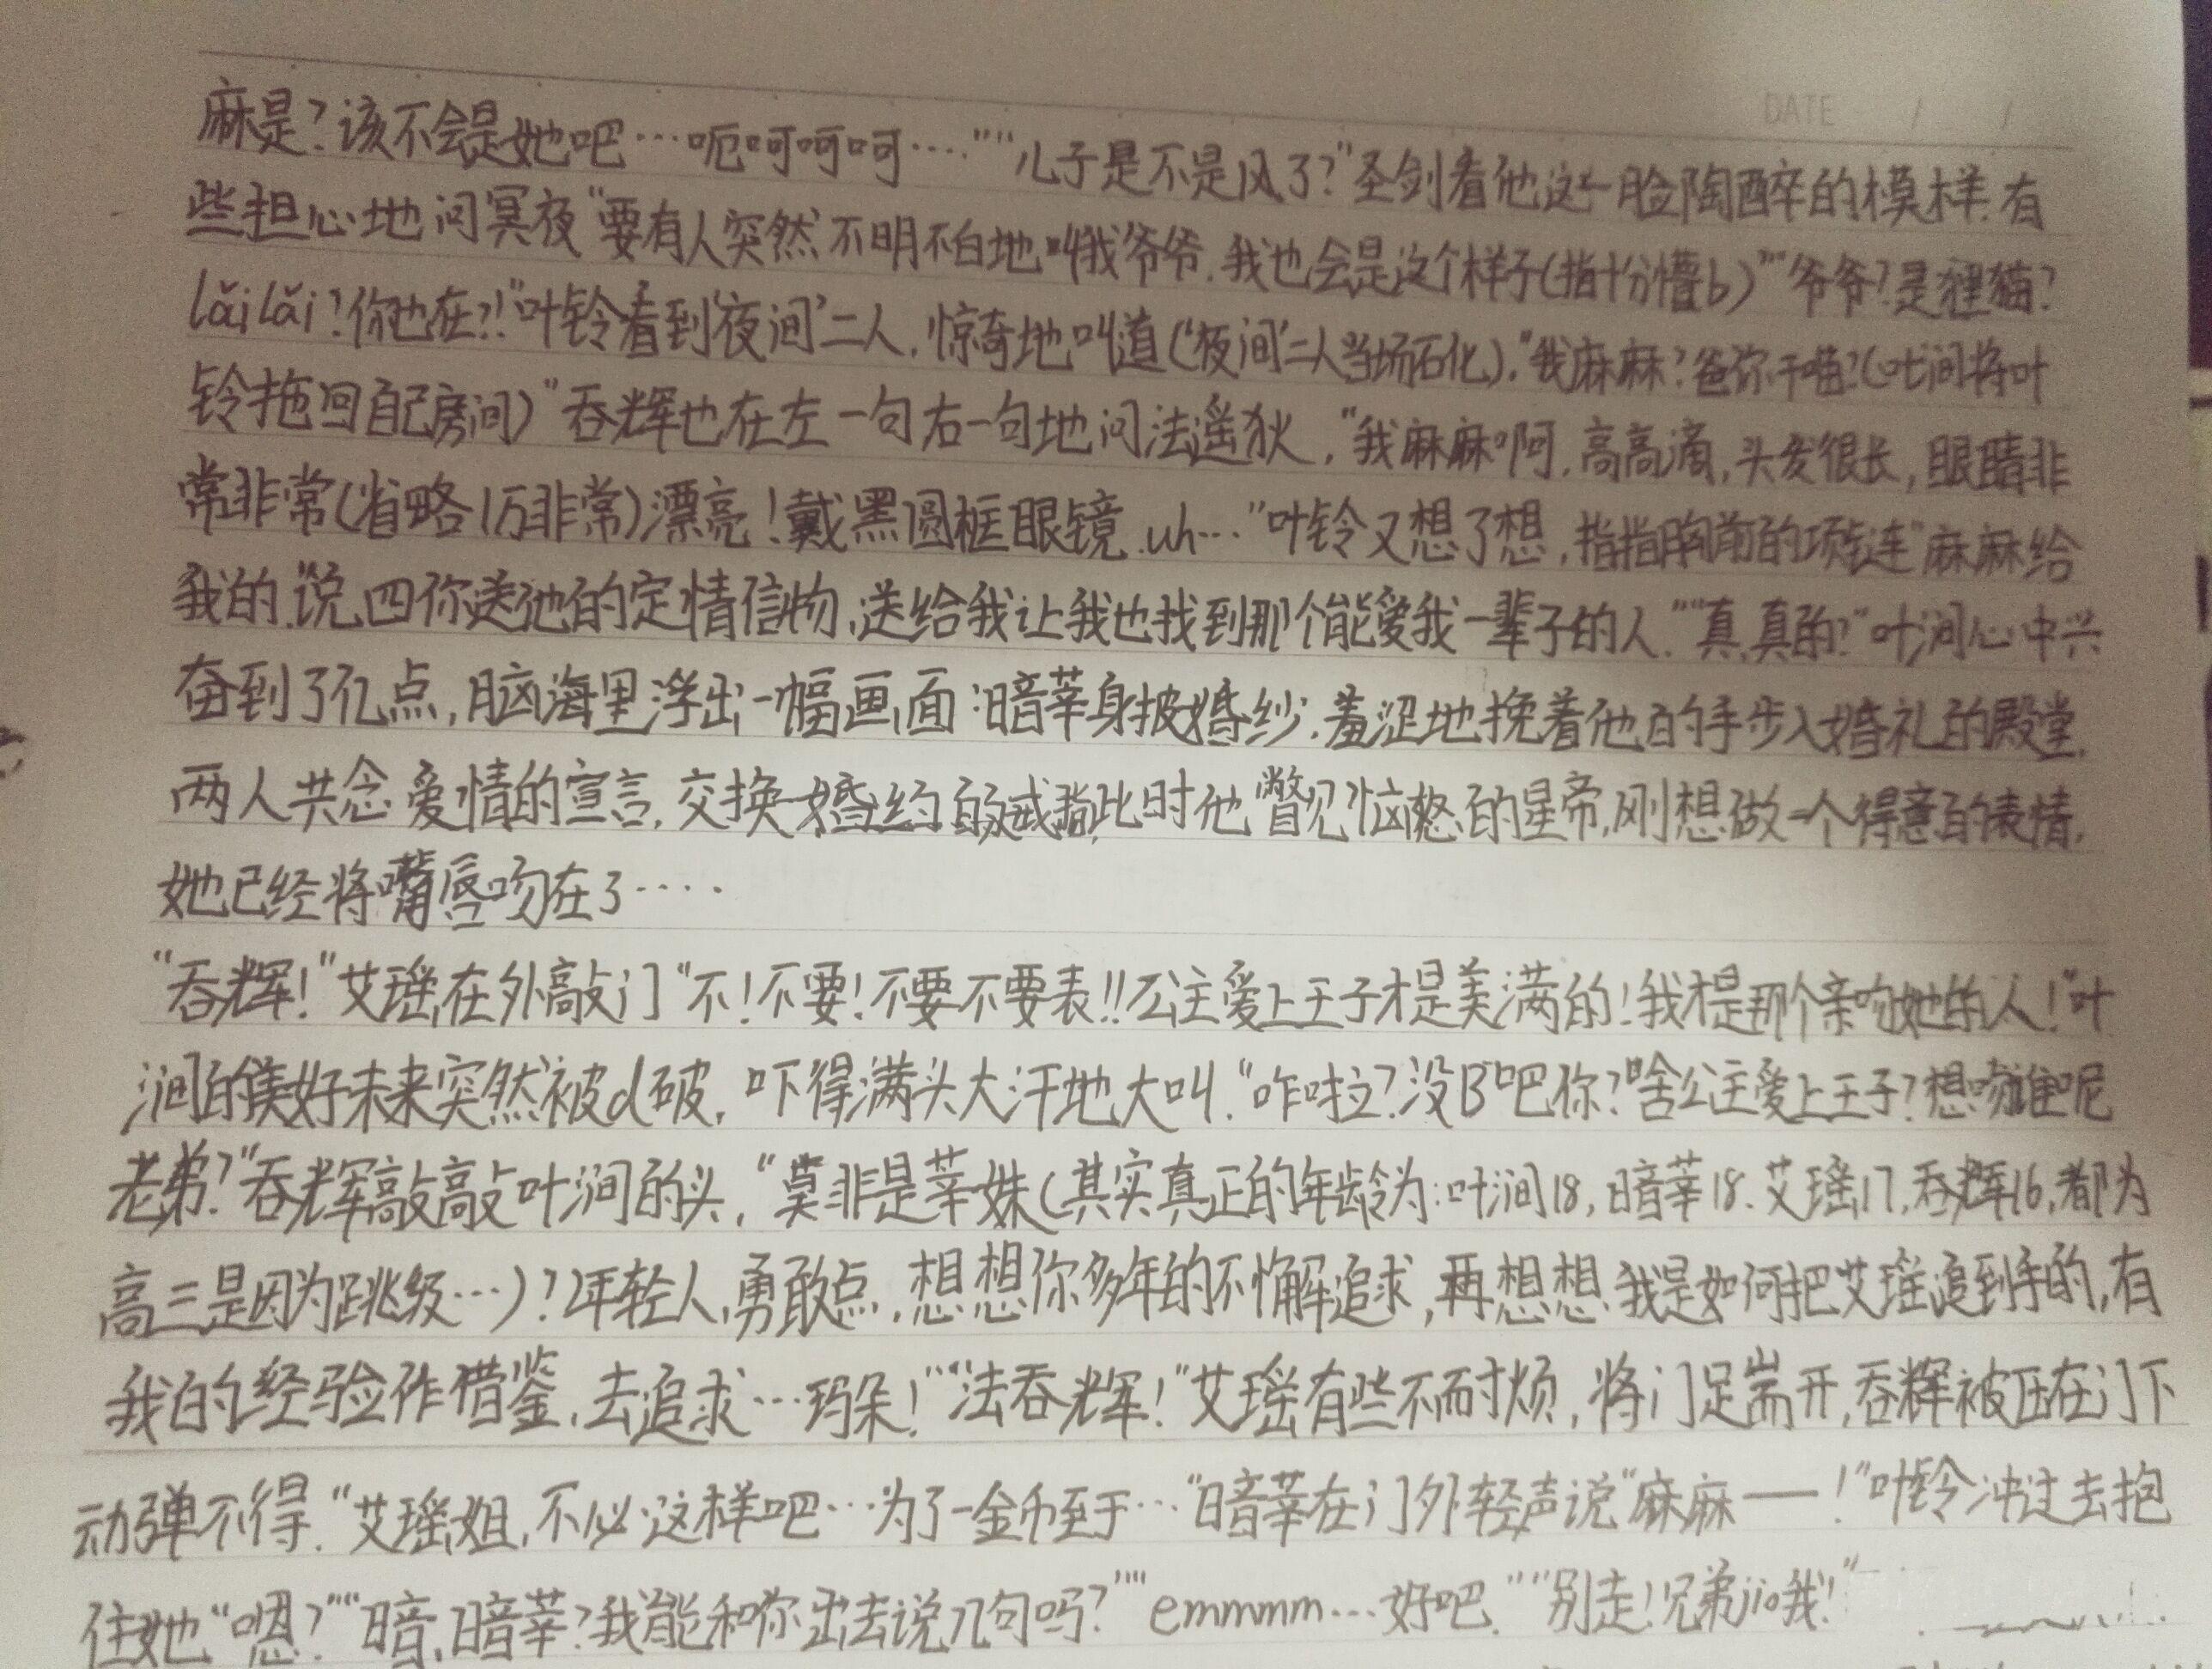 DATE / /
麻是?该不会是她吧…呃呵呵呵…." "儿子是不是风了?"圣剑看他这一脸陶醉的模样.有
些担心地问冥夜"要有人突然不明不白地叫我爷爷.我也会是这个样子(指十分懵b)" "爷爷?是狸猫?
lǎilǎi?你也在?!"叶铃看到'夜涧'二人,惊奇地叫道('夜涧'二人当场石化)."我麻麻?爸你干啥?(叶涧将叶
铃拖回自己房间)"吞辉也在左一句右一句地问法遥狄,"我麻麻啊,高高滴,头发很长,眼睛非
常非常(省略1万非常)漂亮!戴黑圆框眼镜.uh…"叶铃又想了想,指指胸前的项链"麻麻给
我的.说四你送他的定情信物,送给我让我也找到那个能爱我一辈子的人." "真,真的?"叶涧心中兴
奋到了亿点,脑海里浮出一幅画面:暗莘身披婚纱.羞涩地挽着他的手步入婚礼的殿堂,
两人共念爱情的宣言,交换婚约的戒指,此时他瞥见恼怒的星帝,刚想做一个得意的表情,
她已经将嘴唇吻在了….
"吞辉!"艾瑶在外敲门"不!不要!不要不要表!!公主爱上王子才是美满的!我才是那个亲吻她的人!"叶
涧的美好未来突然被d破,吓得满头大汗地大叫."咋啦?没B吧你?啥公主爱上王子?想吻谁呢
老弟?"吞辉敲敲叶涧的头,"莫非是莘姝(其实真正的年龄为:叶涧18,暗莘18.艾瑶17,吞辉16,都为
高三是因为跳级…)?年轻人,勇敢点,想想你多年的不懈追求,再想想我是如何把艾瑶追到手的,有
我的经验作借鉴,去追求…玛朵!" "法吞辉!"艾瑶有些不耐烦,将门踹开,吞辉被压在门下
动弹不得."艾瑶姐,不必这样吧…为了一金币至于…"暗莘在门外轻声说"麻麻——!"叶铃冲过去抱
住她"嗯?" "暗,暗莘?我能和你出去说几句吗?" "emmmm…好吧." "别走!兄弟jio我!"